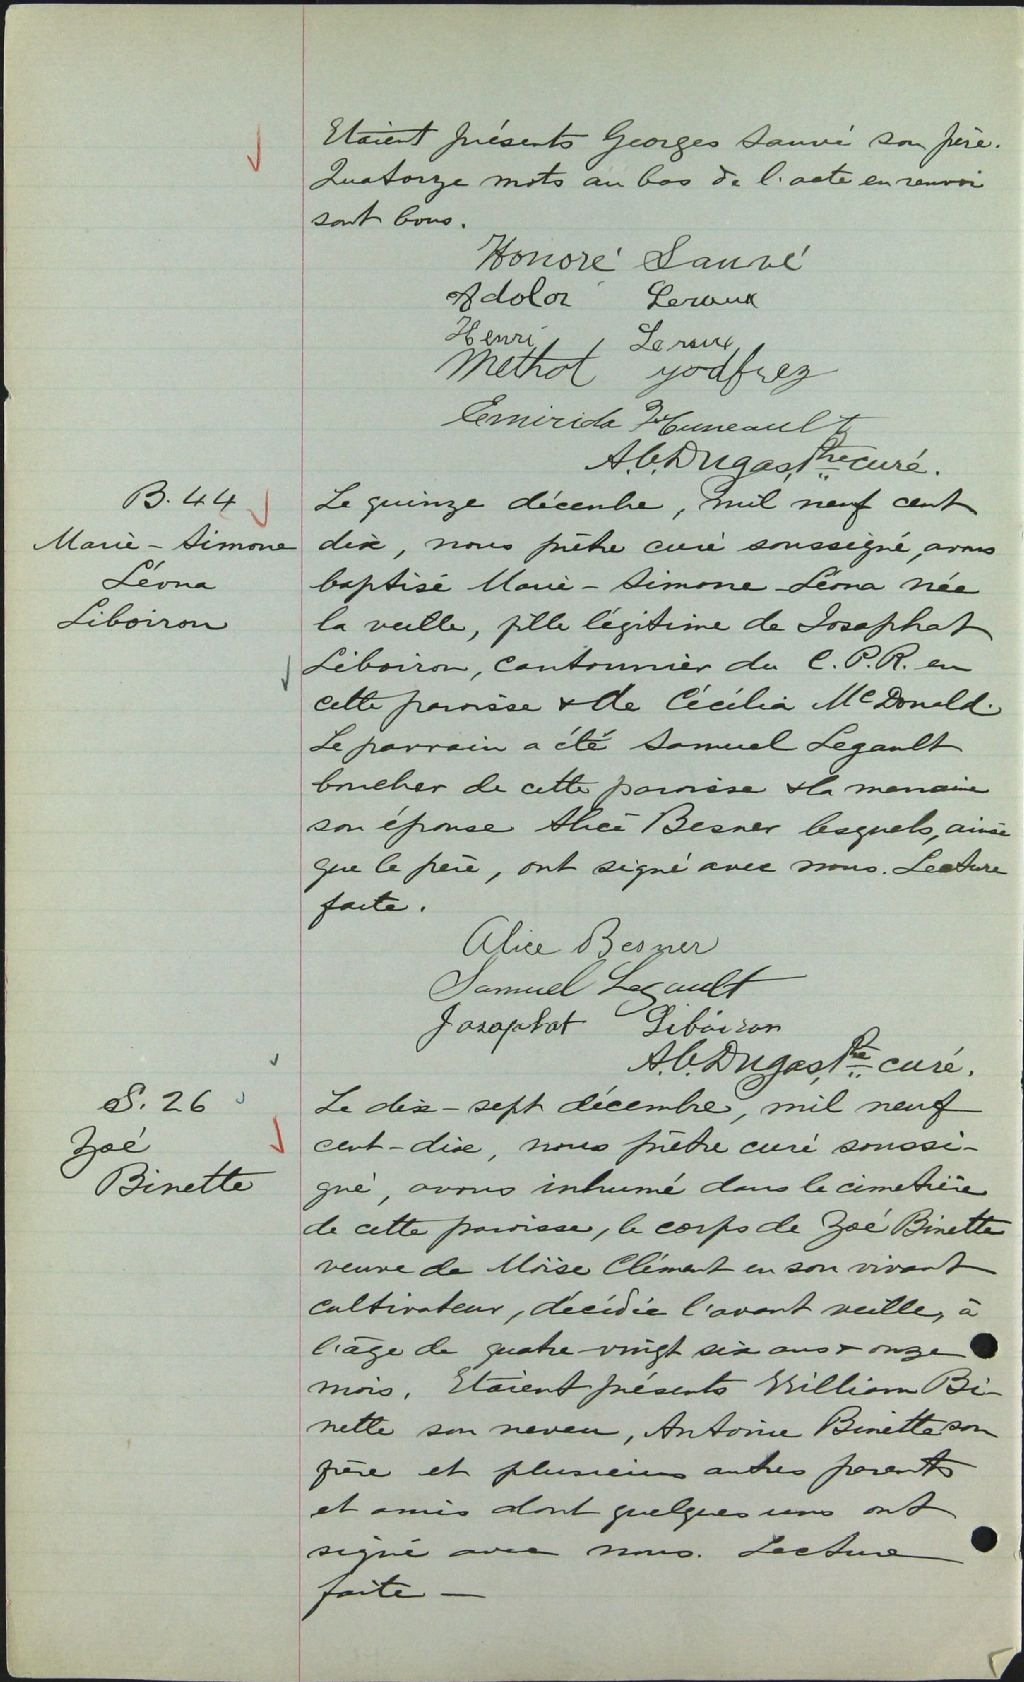 Etaient présents Georges Sauvé son père.
Quatorze mots au bas de l'acte en renvoi
sont bons.
Honoré Sauvé
Adolor Leroux
Henri Leroux
Methot Godfrez
Emirida Huneault
A.C. Dugas, Ptre curé.
B. 44
Marie-Simone
Léona
Liboiron
Le quinze décembre, mil neuf cent
dix, nous prêtre curé soussigné, avons
baptisé Marie-Simone-Léona née
la veille, fille légitime de Josaphat
Liboiron, cantonnier du C.P.R. en
cette paroisse & de Cécilia McDonald.
Le parrain a été Samuel Legault
boucher de cette paroisse & la marraine
son épouse Alice Besner lesquels, ainsi
que le père, ont signé avec nous. Lecture
faite.
Alice Besner
Samuel Legault
Josaphat Liboiron
A.C. Dugas, Ptre curé.
S. 26
Zoé
Binette
Le dix-sept décembre, mil neuf
cent-dix, nous prêtre curé soussi-
gné, avons inhumé dans le cimetière
de cette paroisse, le corps de Zoé Binette
veuve de Moïse Clément en son vivant
cultivateur, décédée l'avant veille, à
l'âge de quatre-vingt six ans & onze
mois. Etaient présents William Bi-
nette son neveu, Antoine Binette son
frère et plusieurs autres parents
et amis dont quelques uns ont
signé avec nous. Lecture
faite —